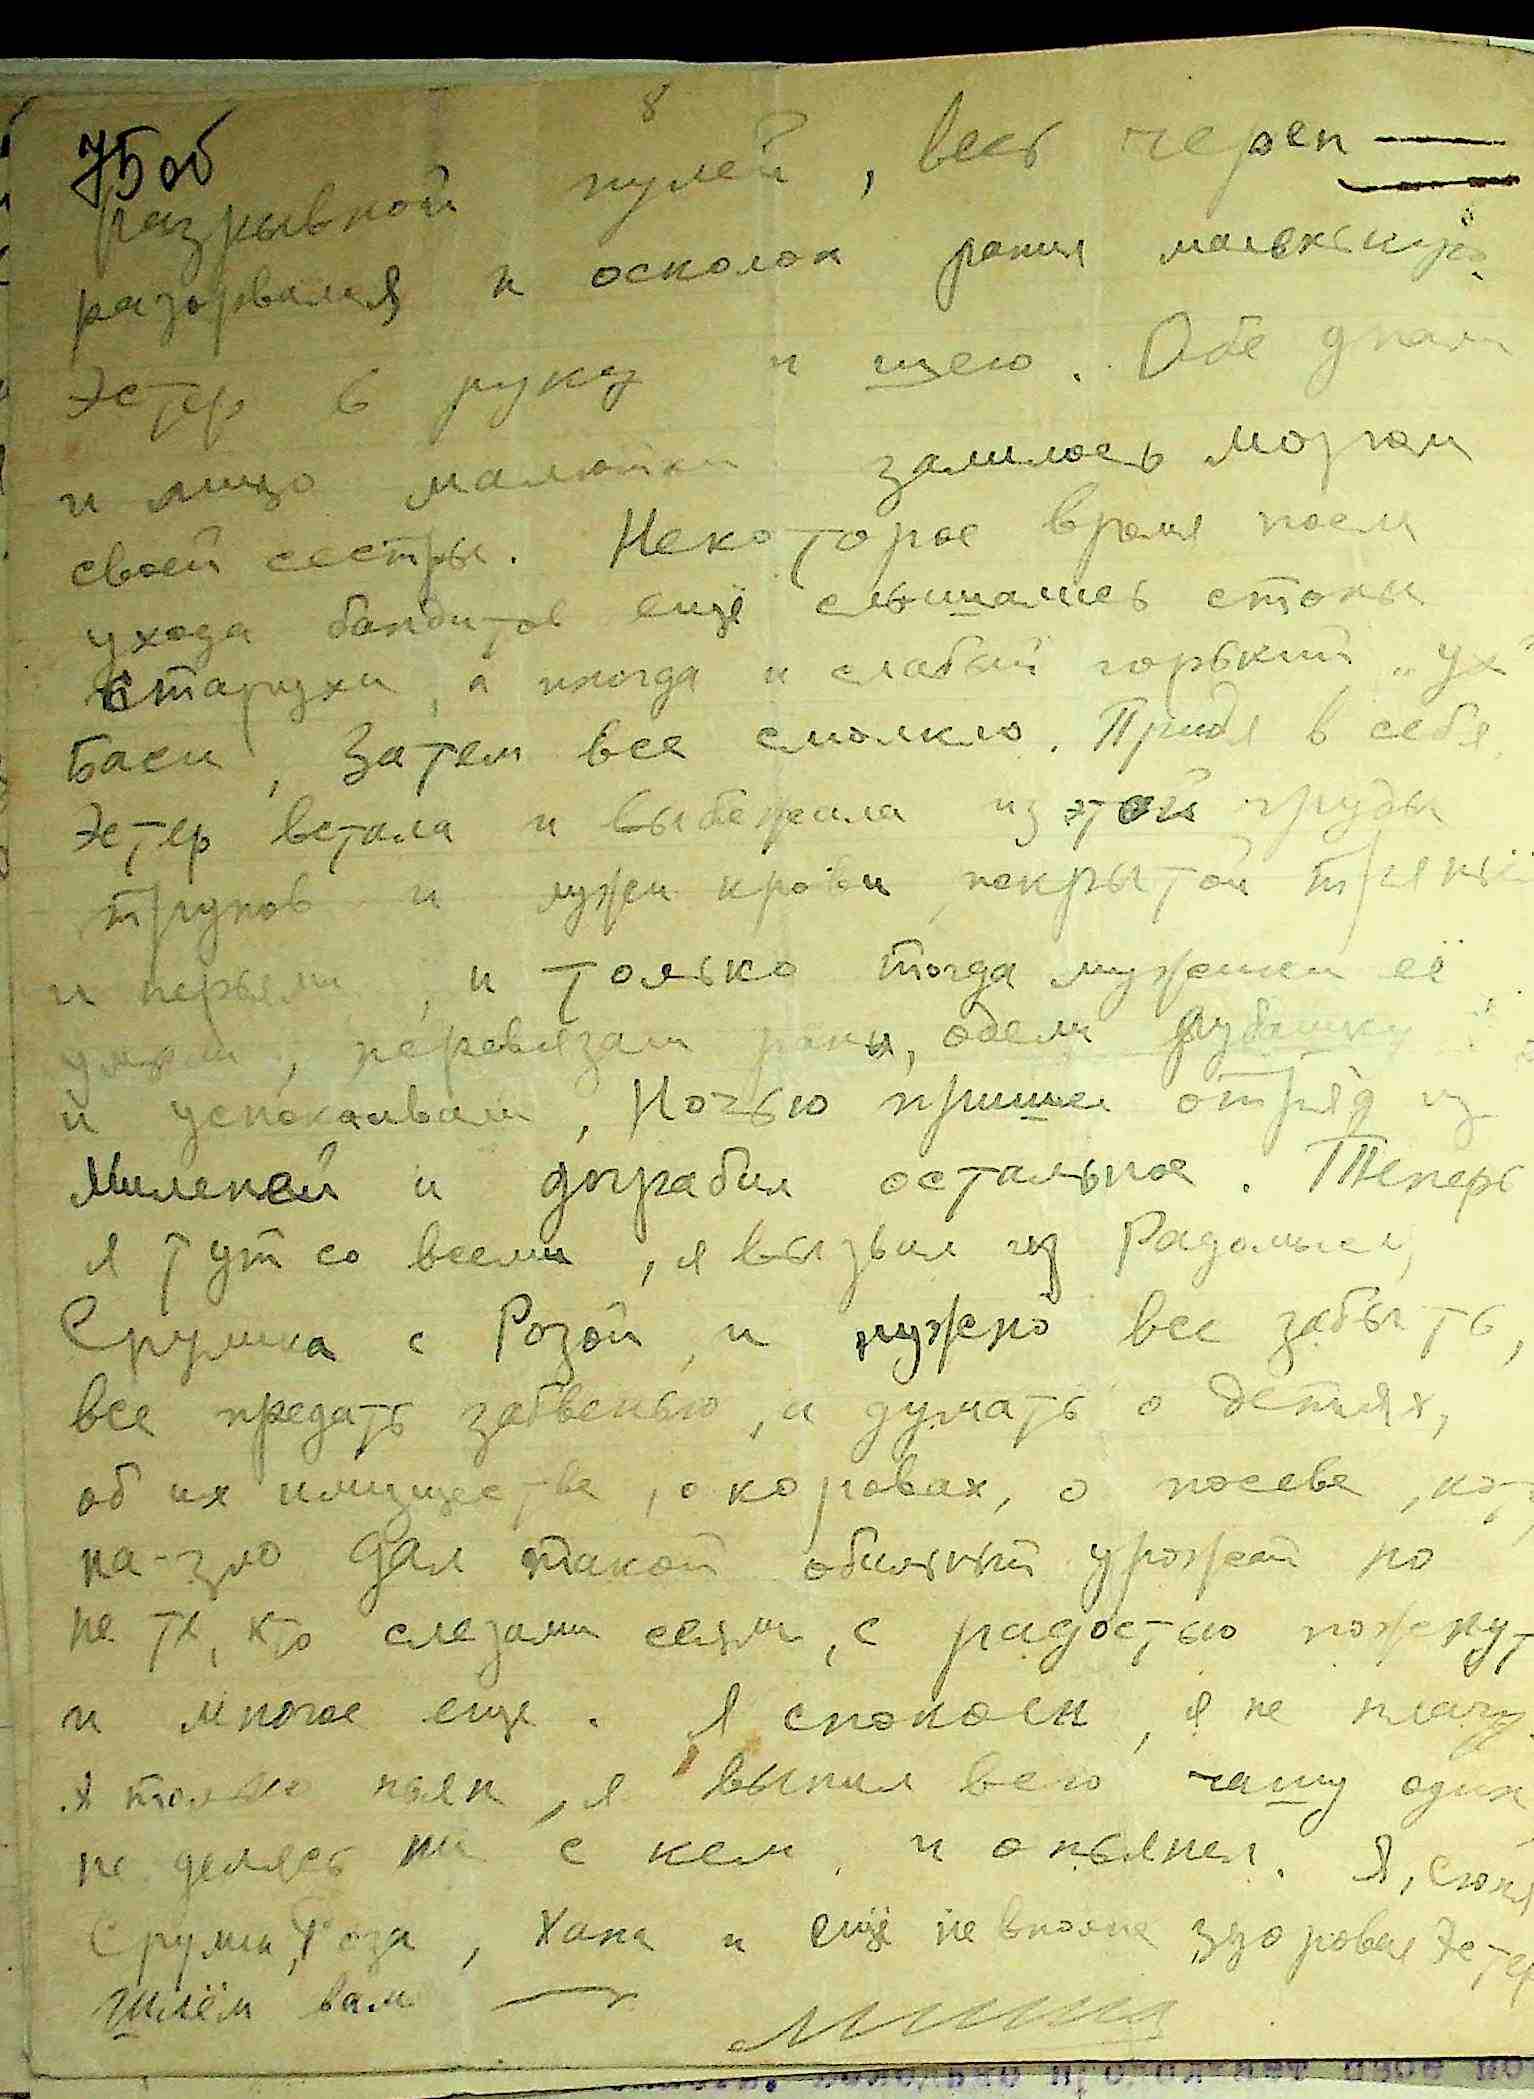 8
75об
разрывной пулей, весь череп
разорвался и осколок ранил маленькую
Эстер в руку и шею. Обе упали
и лицо малютки залилось мозгом
своей сестры. Некоторое время после
ухода бандитов ещё слышались стоны
старухи, а иногда и слабый горький „ух"
Баси, Затем все смолкло. Придя в себя
Эстер встала и выбежала из этой груды
трупов и лужи крови, покрытой
и перьями, и только тогда её
умыли, перевязали раны, одели рубашку
и успокаивали, Ночью пришел отряд из
Миленей и дограбил остальное. Теперь
я тут со всеми, я вызвал из Радомысля
Срумика с Розой, и нужно все забыть,
все предать забвенью, и думать о детях,
об их имуществе, о коровах, о посеве,
на-зло дал такой обильный урожай но
не те, кто слезами сеяли, с радостью пожнут
и многое еще. Я спокоен, я не плачу
я только пьян, я выпил всю чашу один,
не делясь ни с кем и опьянел. Я, Сюня
Срумик, Роза, Хана и ещё не вполне здоровая Эстер
шлём вам —